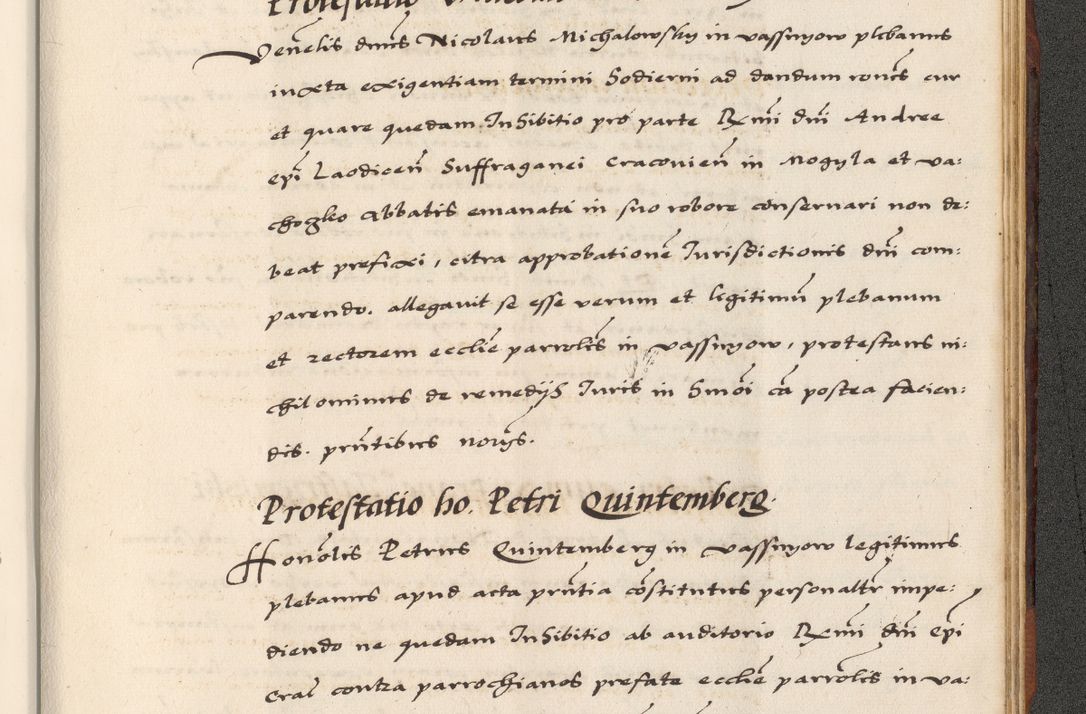 Venēlis dnūs Nicolaus Michalowsky in vassnyow plebanus
iuxta exigentiam termini hodierni ad dandum roncs cur
et quare quedam Inhibitio pro parte Rxmi dni Andree
Epi Laodiceñ Suffraganei Cracovieñ in Mogyla et va:
choczko Abbatis emanata in suo robore conservari non de:
beat prefixi, citra approbationē Iurisdictionis dni com:
parendo. allegavit se esse verum et legitimū plebanum
et rectorem ecclie parrolis in vassnyow, protestans ni:
chilominus de remedijs Iuris in hmoi cā postea facien:
dis. prntibus norijs.
Protestatio ho. Petri Quintemberg.
Honolis Petrus Quintemberg in vassnyow legitimus
plebanus apud acta prntia cōstitutus personaltr impe:
diendo ne quedam Inhibitio ab auditorio Rxmi dni Epi
Crac contra parrochianos prefate ecclie parrolis in va: